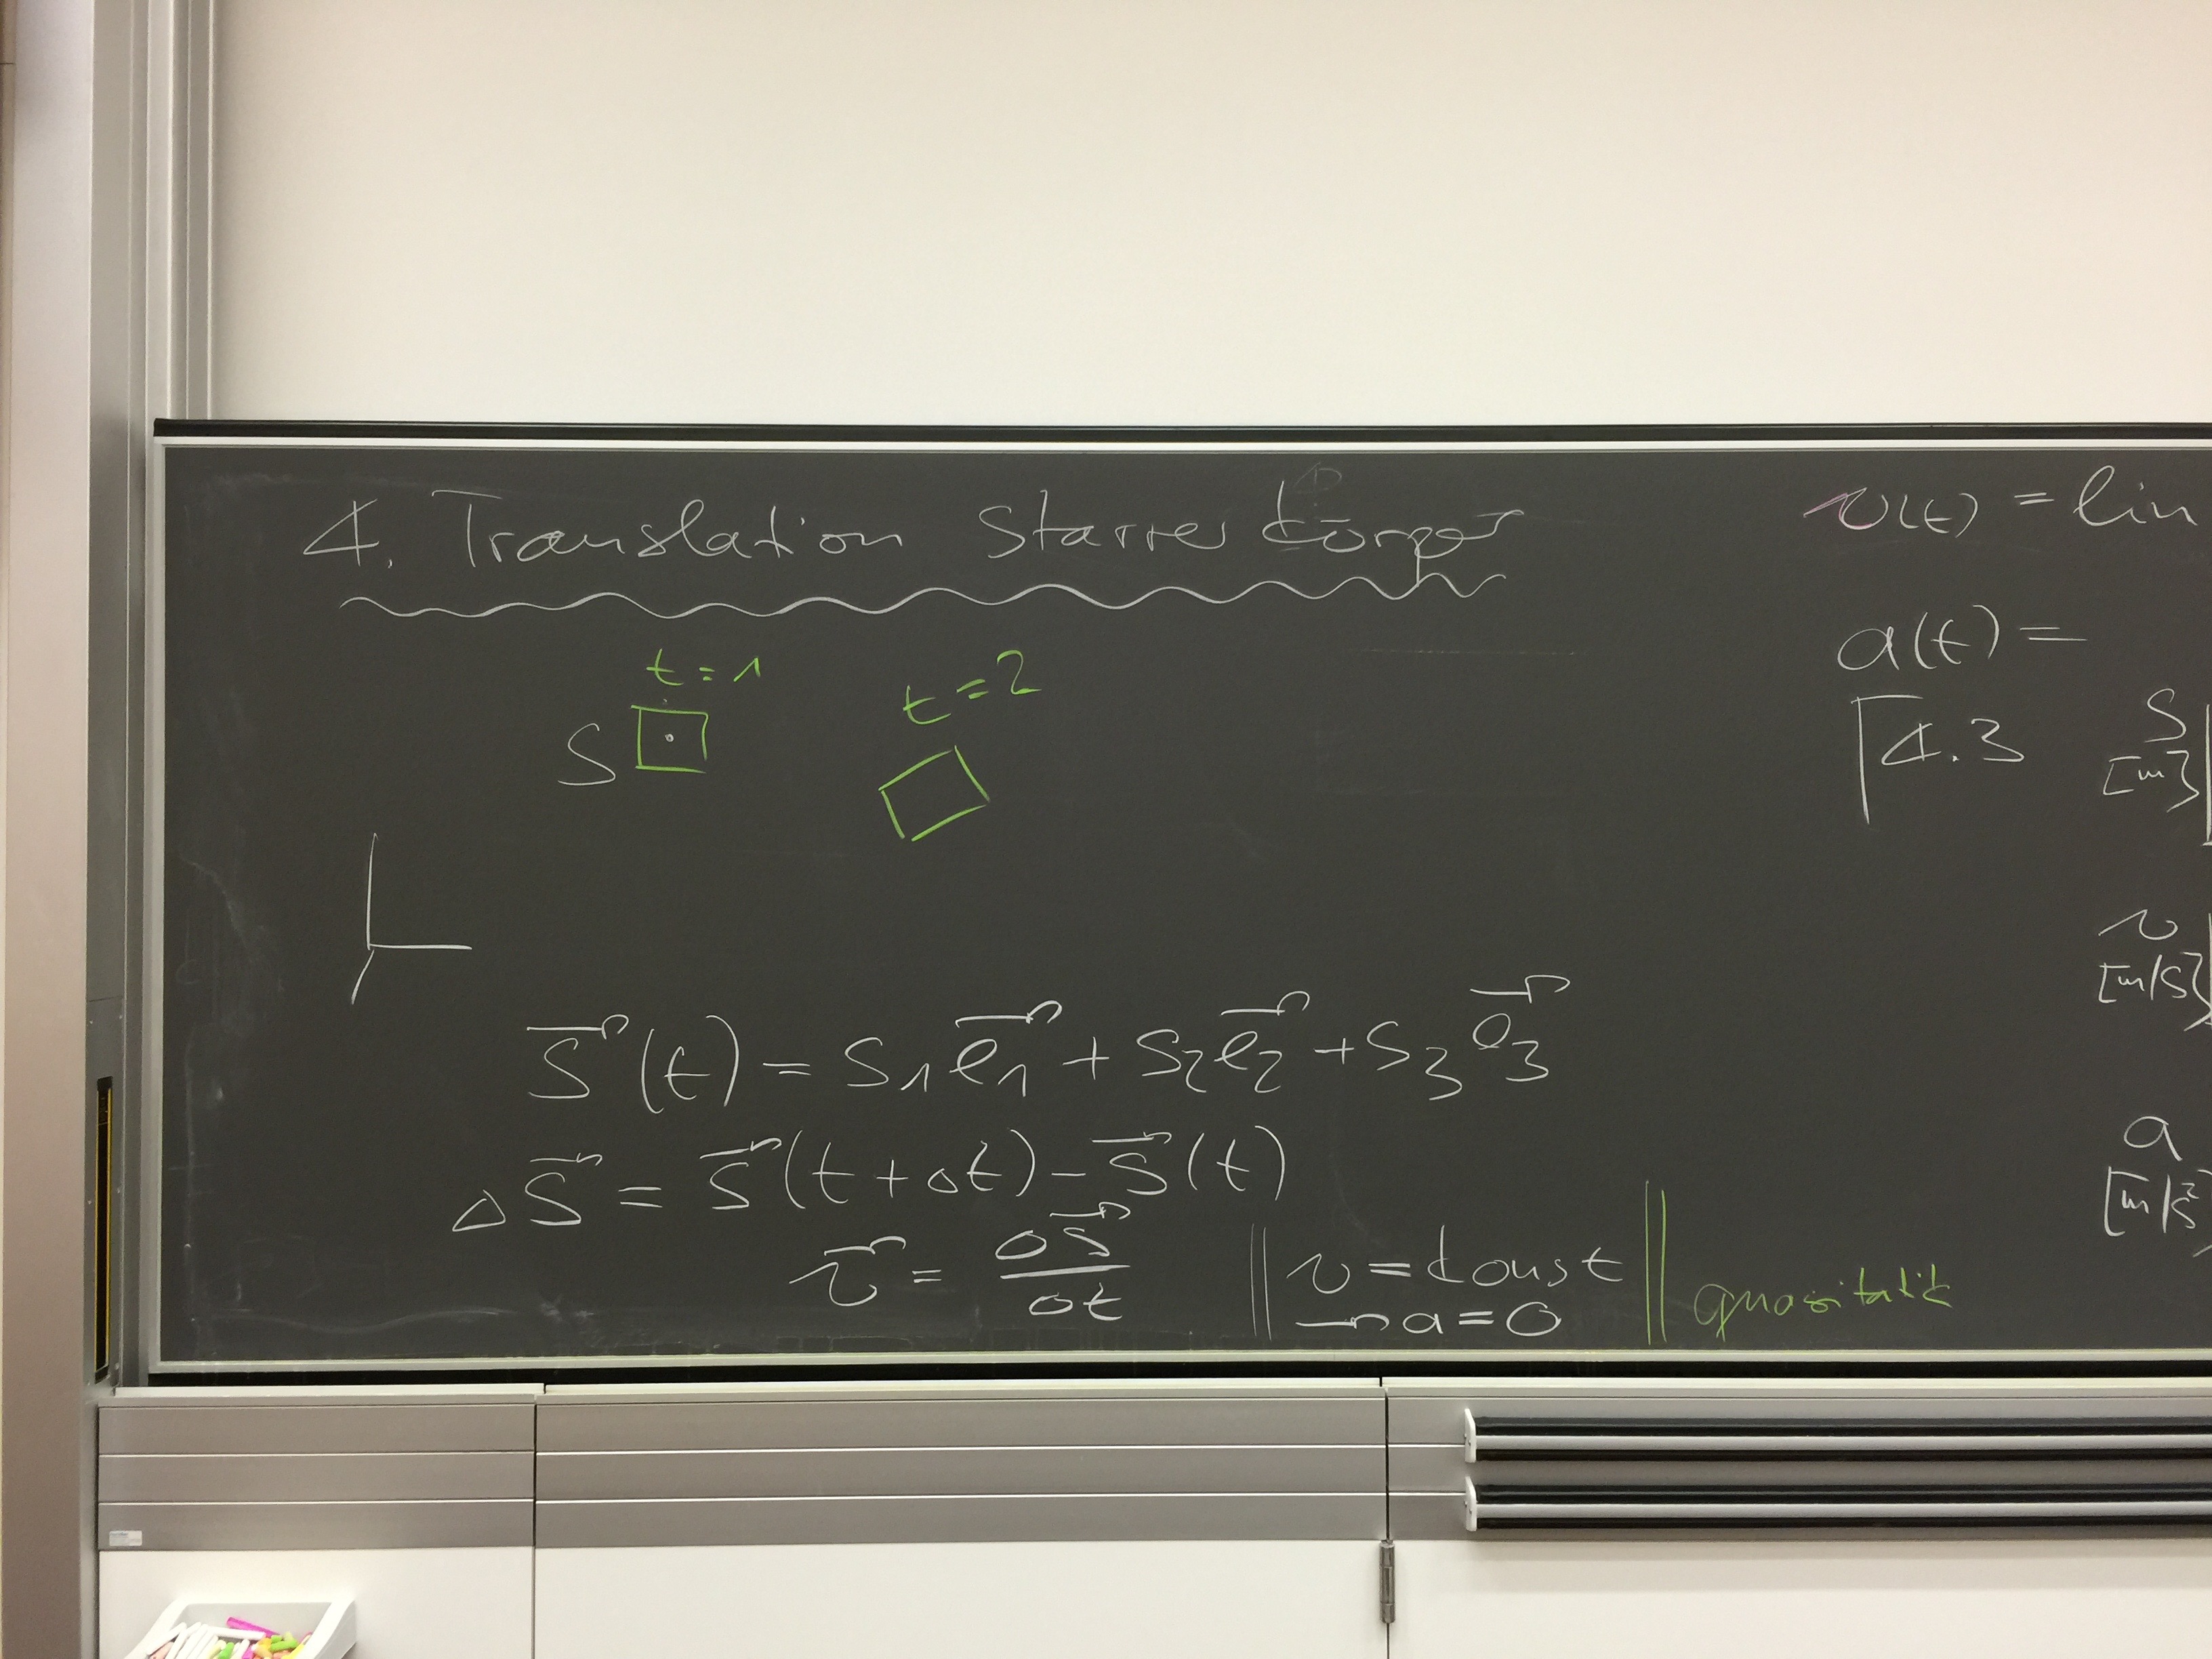 4. Translation Starrer Körper
t = 1
t = 2
S
s⃗(t) = s₁e⃗₁ + s₂e⃗₂ + s₃e⃗₃
Δs⃗ = s⃗(t + Δt) - s⃗(t)
v⃗ = Δs⃗/Δt || v = konst
→ a = 0 ||
v(t) = lim
a(t) =
4.3
S
[m]
v
[m/s]
a
[m/s²]